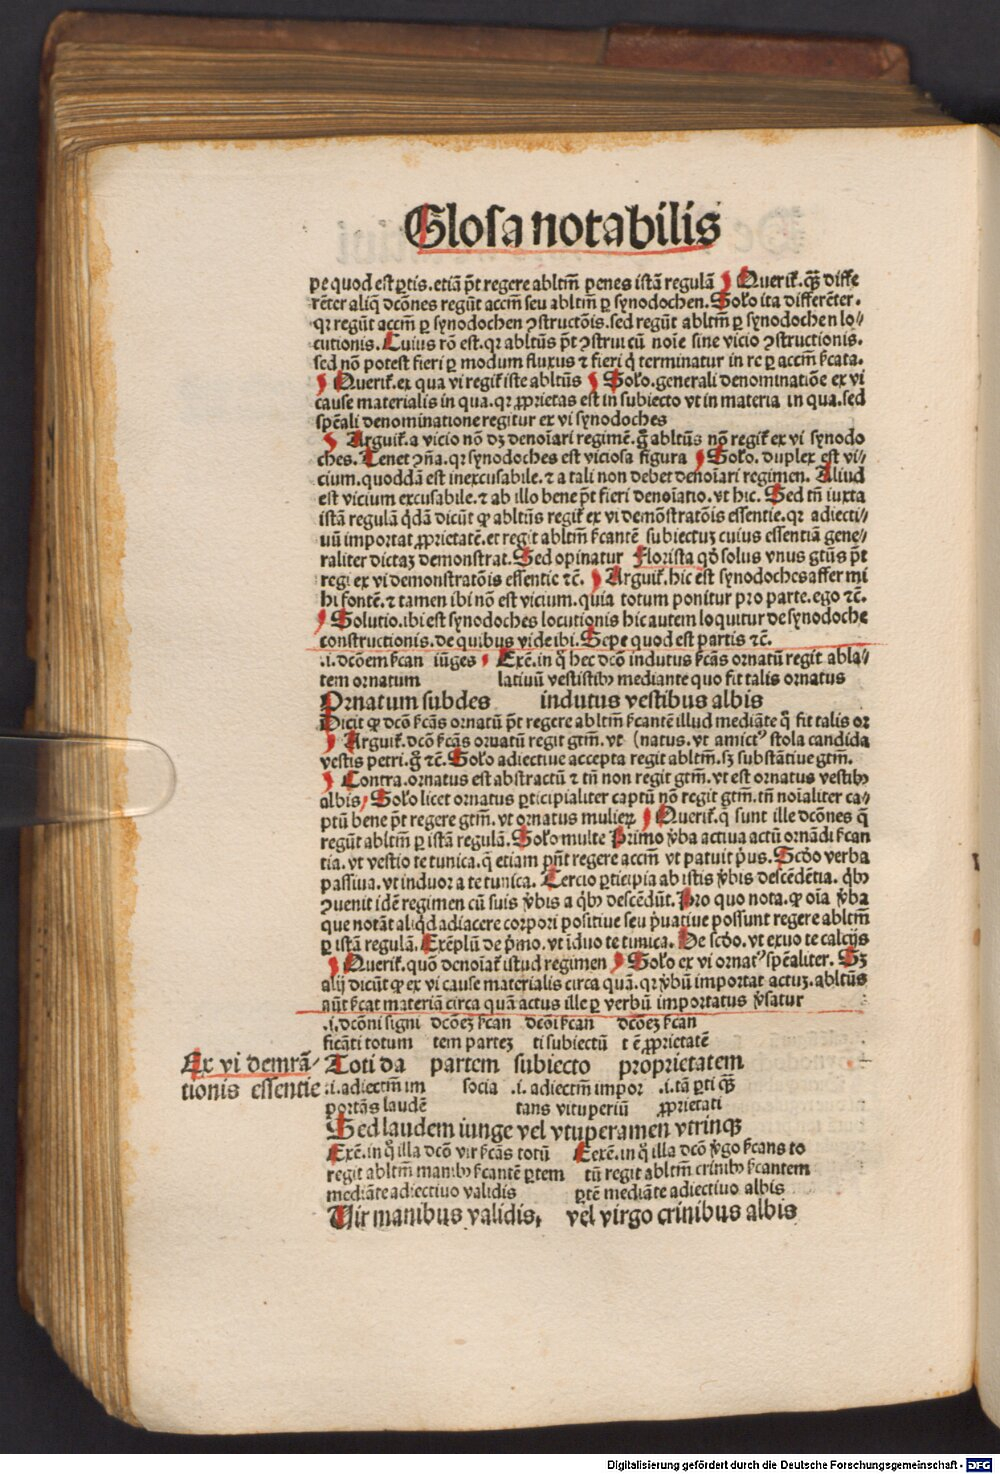 Glosa notabilis
pe quod est ꝑtis. etiā p̄t regere abltm̄ penes istā regulā Querit̄. qͣꝫ diffe
rēter aliq̄ dcōnes regūt accm̄ seu abltm̄ ꝑ synodochen. Solo ita differēter.
qꝛ regūt accm̄ ꝑ synodochen ꝯstructōis. sed regūt abltm̄ ꝑ synodochen lo⸗
cutionis. Cuius rō est. qꝛ abltūs p̄t ꝯstrui cū noīe sine vicio ꝯstructionis.
sed nō potest fieri ꝑ modum fluxus ⁊ fieri q̄ terminatur in re ꝑ accm̄ ſ̄cata.
Querit̄. ex qua vi regit̄ iste abltūs Solo. generali denominatiōe ex vi
cause materialis in qua. qꝛ ꝓprietas est in subiecto vt in materia in qua. sed
spēali denominatione regitur ex vi synodoches
Arguit̄. a vicio nō dꝫ denoīari regimē. g̊ abltūs nō regit̄ ex vi synodo
ches. Tenet ꝯñа. qꝛ synodoches est viciosa figura Solo. duplex est vi⸗
cium. quoddā est inexcusabile. ⁊ a tali non debet denoīari regimen. Aliud
est vicium excusabile. ⁊ ab illo bene p̄t fieri denoīatio. vt hic. Sed tn̄ iuxta
istā regulā q̄dā dicūt ꝙ abltūs regit̄ ex vi demōstratōis essentie. qꝛ adiecti⸗
uū importat ꝓprietatē. et regit abltm̄ ſ̄cantē subiectuꝫ cuius essentiā gene⸗
raliter dictaꝫ demonstrat. Sed opinatur Florista qd̄ solus vnus gtūs p̄t
regi ex vi demonstratōis essentie ⁊c̄. Arguit̄. hic est synodoches affer mi
hi fontē. ⁊ tamen ibi nō est vicium. quia totum ponitur pro parte. ego ⁊c̄.
Solutio. ibi est synodoches locutionis hic autem loquitur de synodoche
constructionis. de quibus vide ibi. Sepe quod est partis ⁊c̄.
.i. dcōem ſ̄can iūges Exē. in q̊ hec dcō indutus ſ̄cās ornatū regit abla⸗
tem ornatum latiuū vestistibꝫ mediante quo fit talis ornatus
Ornatum subdes indutus vestibus albis
Dicit ꝙ dcō ſ̄cās ornatū p̄t regere abltm̄ ſ̄cantē illud mediāte q̊ fit talis or
Arguit̄. dcō ſ̄cās oruatū regit gtm̄. vt (natus. vt amictꝰ stola candida
vestis petri. g̊ ⁊c̄. Solo adiectiue accepta regit abltm̄. sꝫ substātiue gtm̄.
Contra. ornatus est abstractū ⁊ tn̄ non regit gtm̄. vt est ornatus vestibꝫ
albis, Solo licet ornatus ꝑticipialiter captū nō regit gtm̄. tn̄ noīaliter ca⸗
ptū bene p̄t regere gtm̄. vt ornatus mulieꝝ Querit̄. q̄ sunt ille dcōnes q̄
regūt abltm̄ ꝑ istā regulā. Solo multe Primo v̄ba actiua actū ornādi ſ̄can
tia. vt vestio te tunica. q̄ etiam pn̄t regere accm̄ vt patuit pͥus. Scd̄o verba
passiua. vt induor a te tunica. Tercio ꝑticipia ab istis v̄bis descēdētia. qͥbꝫ
ꝯuenit idē regimen cū suis v̄bis a qͥbꝫ descēdūt. Pro quo nota. ꝙ oīa v̄ba
que notāt aliqͥd adiacere corpori positiue seu pͥuatiue possunt regere abltm̄
ꝑ istā regulā. Exēplū de pͥmo. vt īduo te tunica. De scd̄o. vt exuo te calcijs
Querit̄. quō denoīat̄ istud regimen Solo ex vi ornatꝰ spēaliter. Sꝫ
alij dicūt ꝙ ex vi cause materialis circa quā. qꝛ v̄bū importat actuꝫ. abltūs
aūt ſ̄cat materiā circa quā actus ille ꝑ verbū importatus v̄satur
.i. dcōni signi dcōeꝫ ſ̄can dcōi ſ̄can dcōeꝫ ſ̄can
ficāti totum tem parteꝫ ti subiectū t ē ꝓprietatē
Ex vi demrā⸗ Toti da partem subiecto proprietatem
tionis essentie .i. adiectm̄ im socia .i. adiectm̄ impor .i. tā ꝑti qͣꝫ
portās laudē tans vituperiū ꝓprietati
Sed laudem iunge vel vtuperamen vtrinqꝫ
Exē. in q̊ illa dcō vir ſ̄cās totū Eexē. in q̊ illa dcō v̄go ſ̄cans to
regit abltm̄ manibꝫ ſ̄cantē ꝑtem tū regit abltm̄ crinibꝫ ſ̄cantem
mediāte adiectiuo validis ꝑtē mediāte adiectiuo albis
Vir manibus validis, vel virgo crinibus albis
Digitalisierung gefördert durch die Deutsche Forschungsgemeinschaft - DFG